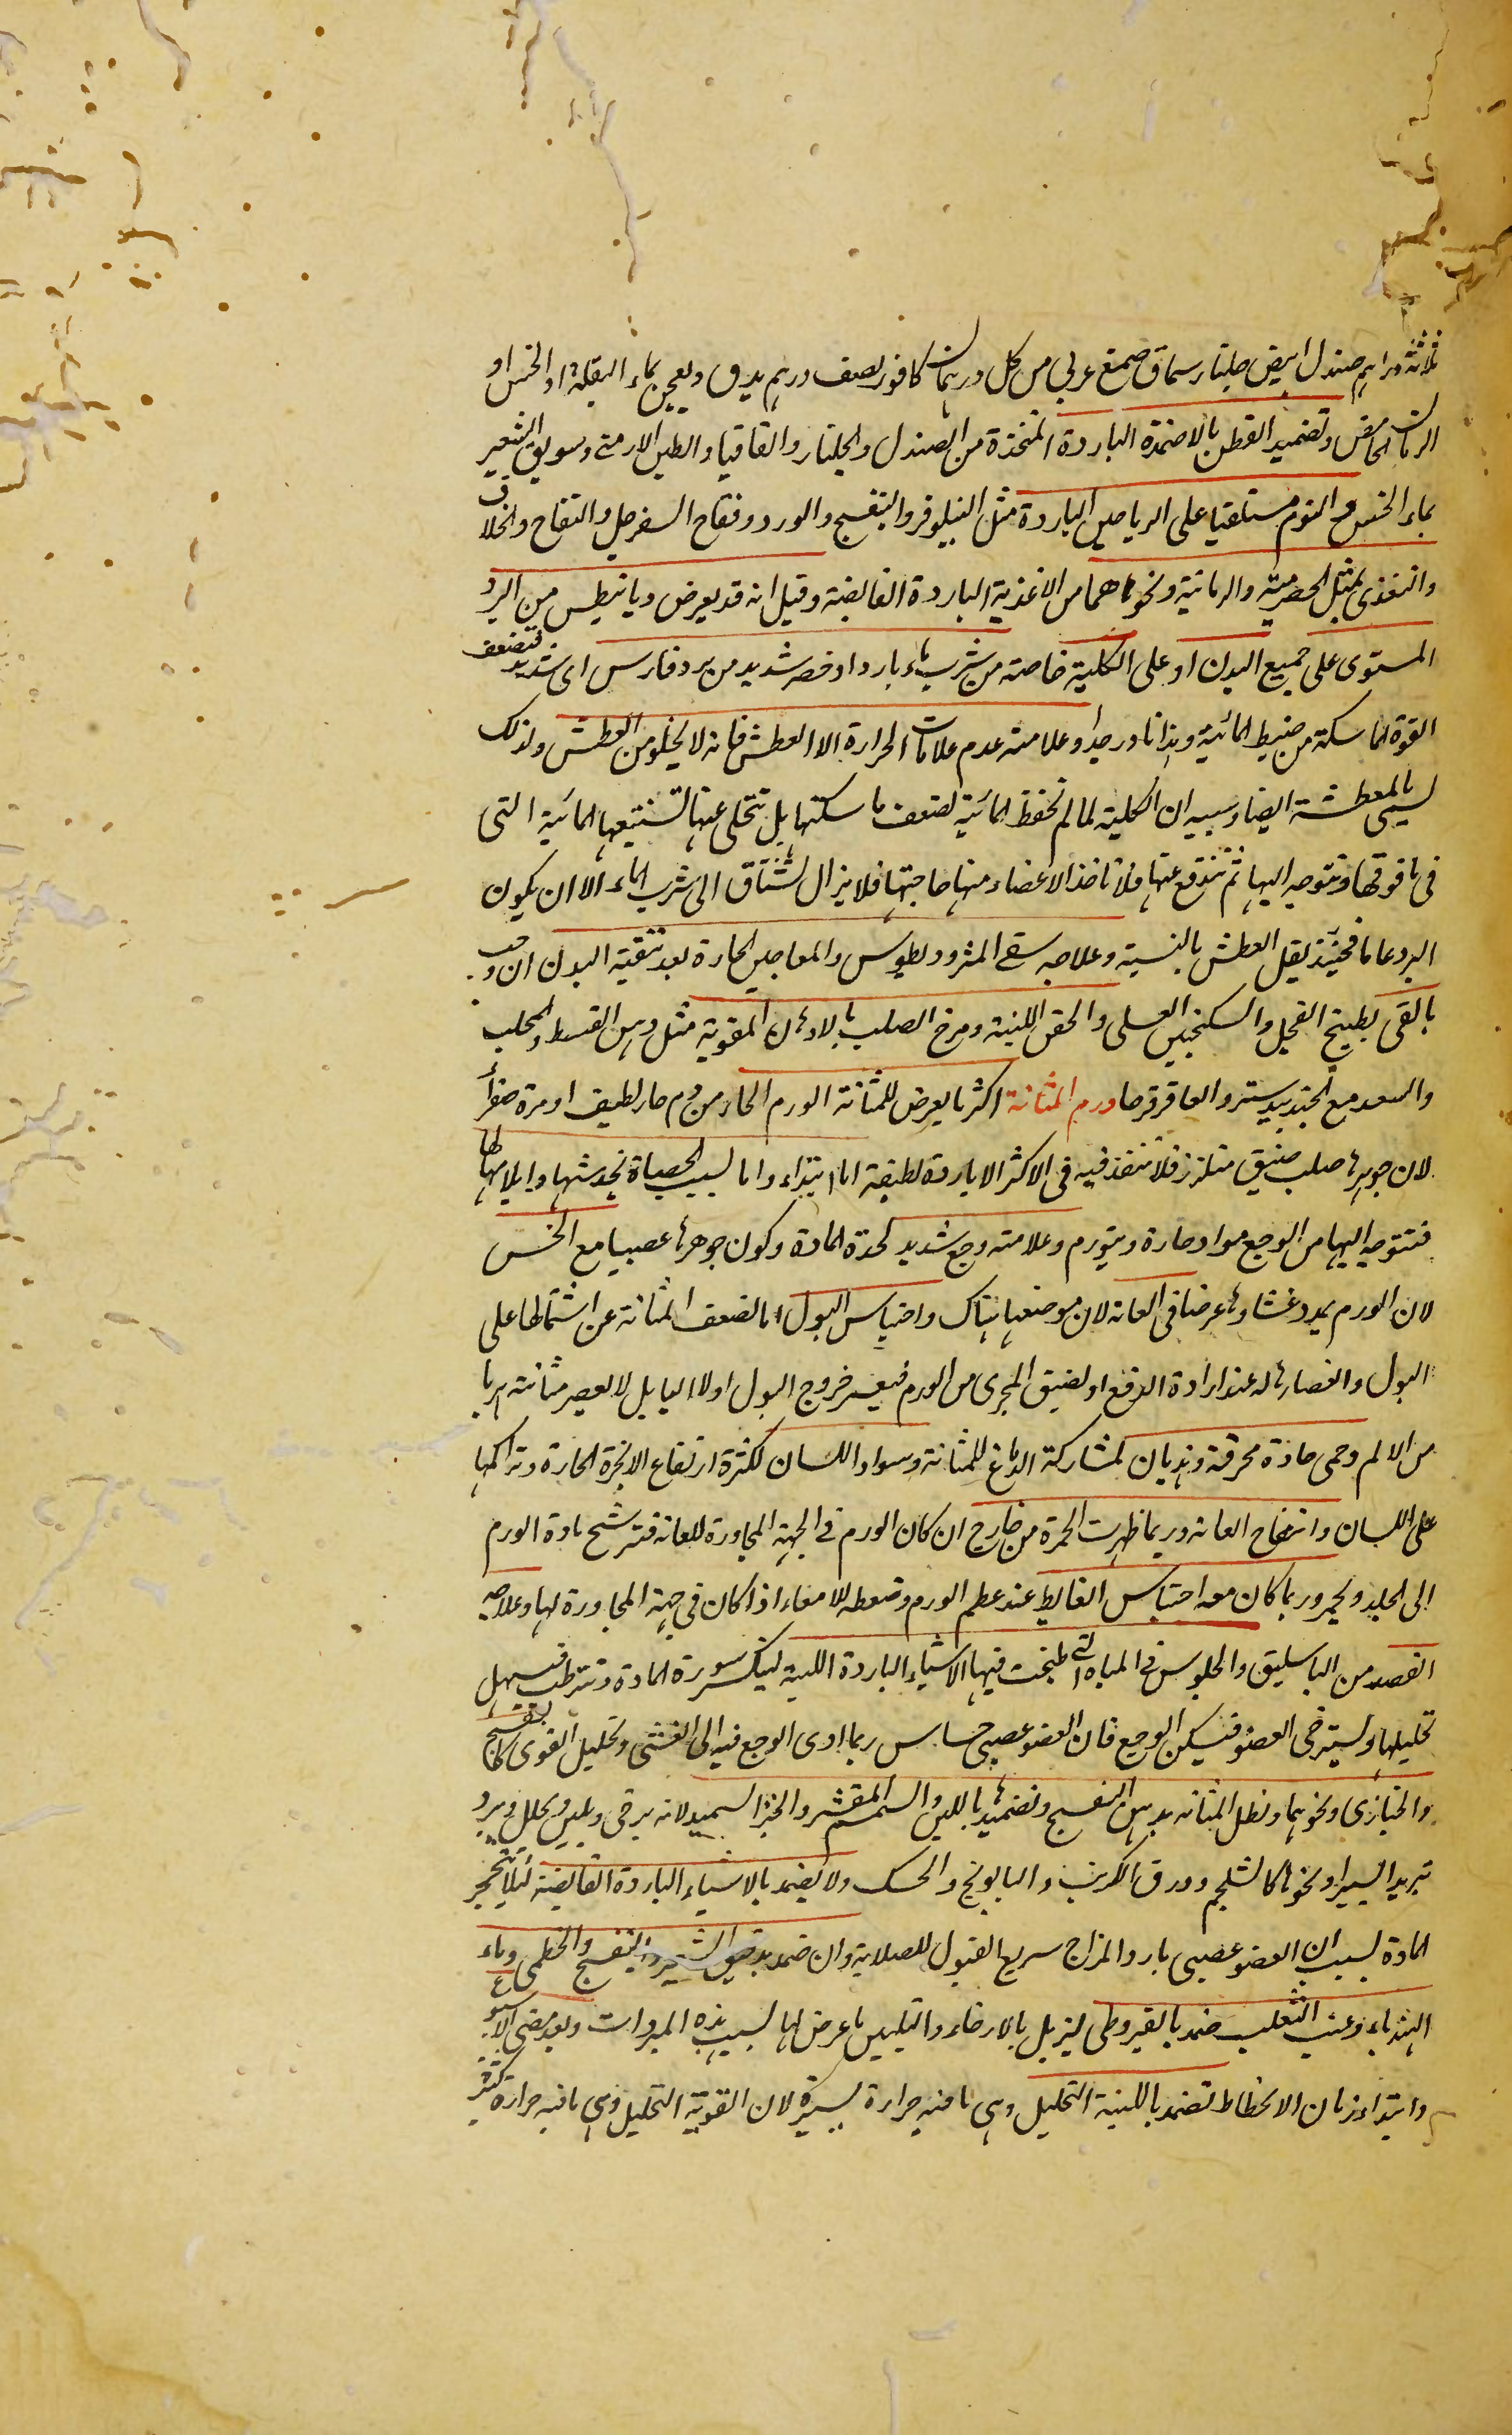 ثلاثة دراهم صندل ابيض جلنار سماق صمغ عربي من كل درهمان كافور نصف درهم يدق ويعجن بماء البقلة او الخس او
الرمان الحامض وتضميد القطن بالاضمدة الباردة المتخذة من الصندل والجلنار والقاقيا والطين الارمنى وسويق الشعير
بماء الخس والنوم مستلقيا على الرياحين الباردة مثل النيلوفر والبنفسج والورد وفقاح السفرجل والتفاح والخلاف
والتغذى بمثل الحصرمية والرمانية ونحوهما من الاغذية الباردة القابضة وقيل انه قد يعرض ديابيطس من البرد
المستوى على جميع البدن او على الكلية خاصة من شرب ماء بارد او خصر شديد من برد قارس اى شديد فتضعف
القوة الماسكة من ضبط المائية وهذا نادر جدا وعلامته عدم علامات الحرارة الا العطش فانه لا يخلو من العطش ولذلك
يسمى بالمعطشة ايضا وسببه ان الكلية لما لم تحفظ المائية لضعف ماسكتها بل تتخلى عنها لتستتبعها المائية التى
فى ما فوقها وتتوجه اليها ثم تندفع عنها فلا تاخذ الاعضاء منها حاجتها فلا يزال تشتاق الى شرب الماء الا ان يكون
البرد عاما فحينئذ يقل العطش بالنسبة وعلاجه سقى المثروديطوس والمعاجين الحارة بعد تنقية البدن ان وجب
بالقى بطبيخ الفجل والسكنجبين العسلى والحقن اللينة ومرخ الصلب بالادهان المقوية مثل دهن القسط والمحلب
والسعد مع الجندبيدستر والعاقرقرحا ورم المثانة اكثر ما يعرض للمثانة الورم الحار من دم حار لطيف او مرة صفراء
لان جوهرها صلب ضيق متلزز فلا تنفذ فيه فى الاكثر الا مادة لطيفة اما ابتداء واما لسبب الحصاة تخدشها وايلامها لها
فتتوجه اليها من الوجع مواد حارة ويتورم وعلامته وجع شديد لحدة المادة وكون جوهرها عصبيا مع الخس
لان الورم يمدد غشاوها عرضا فى العانة لان موضعها هناك واحتباس البول اما لضعف المثانة عن اشتمالها على
البول وانعصارها له عند ارادة الدفع او لضيق المجرى من الورم فيعسر خروج البول اولا اليا بل لا يعصر مثانته هربا
من الالم وحمى حادة محرقة وهذيان لمشاركة الدماغ للمثانة وسواد اللسان لكثرة ارتفاع الابخرة الحارة وتراكمها
على اللسان وانتفاخ العانة وربما ظهرت الحمرة من خارج ان كان الورم فى الجهة المجاورة للعانة فترشح مادة الورم
الى الجلد وتحمر وربما كان معه احتباس الغايط عند عظم الورم وضغطه للامعاء اذا كان فى جهة المجاورة لها وعلاجه
الفصد من الباسليق والجلوس فى المياه التى طبخت فيها الاشياء الباردة اللينة لينكسر سورة المادة وتترطب فيسهل
تحليلها ويسترخى العضو فيسكن الوجع فان العضو عصبى حساس ربما ادى الوجع فيه الى الغشى وتحليل القوى كالبنفسج
والخبازى ونحوهما ونطل المثانة بدهن البنفسج وتضميدها باللبن والسمسم المقشر والخبز السميد لانه يرخى ويلين ويحلل ويبرد
تبريدا يسيرا ونحوها كالشلجم وورق الكرنب والبابونج والحسك ولا يضمد بالاشياء الباردة القابضة لئلا يتحجر
المادة بسبب ان العضو عصبى بارد المزاج سريع القبول للصلابة وان ضمد بدقيق الشعير والبنفسج والخطمى وماء
الهندباء وعنب الثعلب ضمد بالقيروطى ليزيل بالارخاء والتليين ما عرض لها بسبب هذه المبردات وبعد مضى الاسبوع
وابتداء زمان الانحطاط تضمد باللينة التحليل وهى ما فيه حرارة يسيرة لان القوية التحليل وهى ما فيه حرارة كثيرة